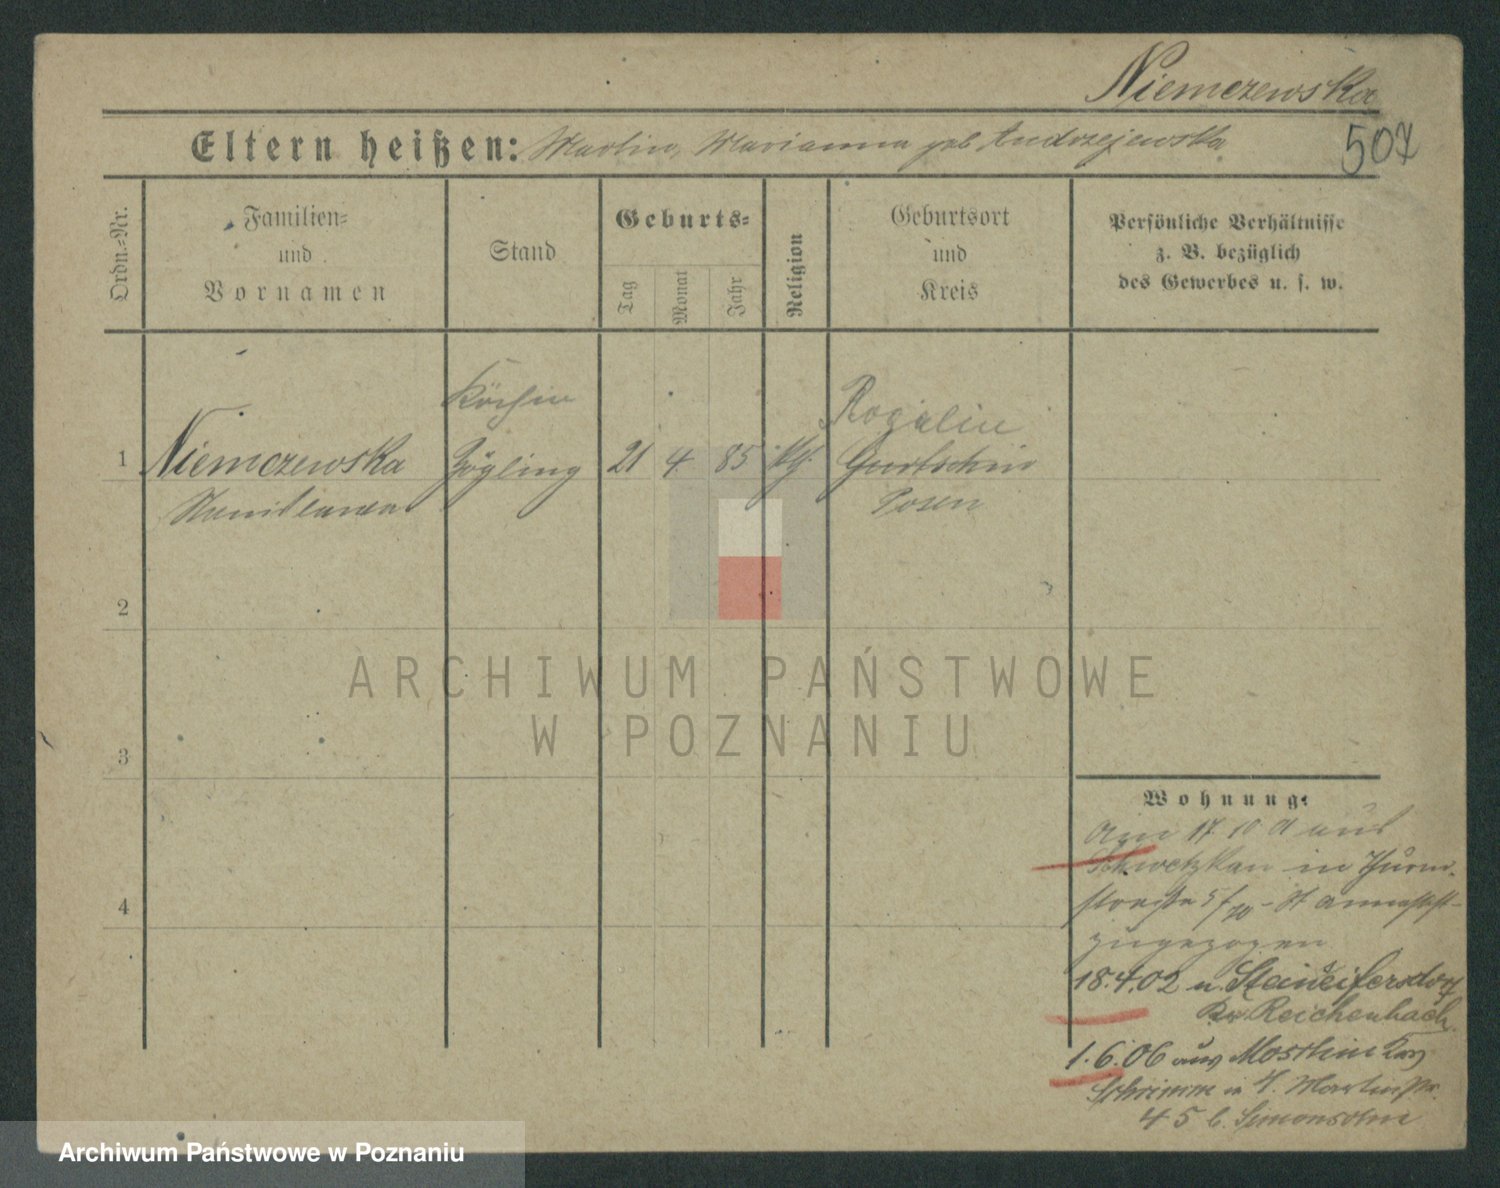 Niemczewska
507
Eltern heißen: Martin, Marianna geb Andrzejewska
Ordn.-Nr.
Familien-
und
Vornamen
Stand
Geburts-
Tag
Monat
Jahr
Religion
Geburtsort
und
Kreis
Persönliche Verhältnisse
z. B. bezüglich
des Gewerbes u. s. w.
Köchin
Rogalin
1 Niemczewska Zögling 21 4 85 Gurtschin
Stanislawa Posen
2
3
4
ARCHIWUM PAŃSTWOWE
W POZNANIU
Wohnung:
am 17 10 aus
Schwetzkau in Thurm-
straße
zugezogen
18.4.02 n. Steinseifersdorf
Kr. Reichenbach
1.6.06 aus Moschin Krs
Schrimm in St. Martinstr.
45 b. Simonsohn
Archiwum Państwowe w Poznaniu